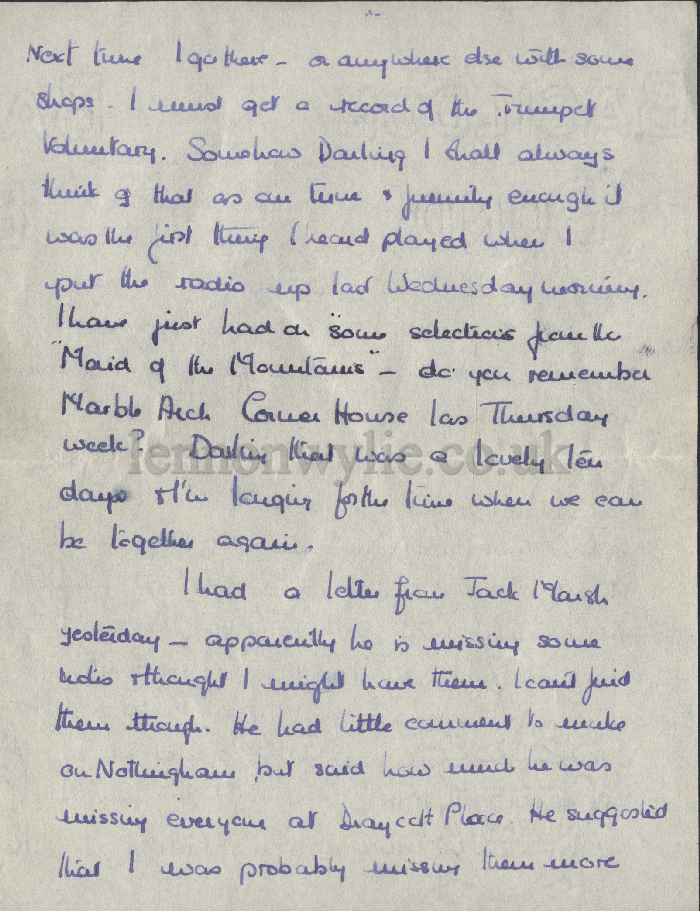 Next time I go there - or anywhere else with some
shops - I must get a record of the Trumpet
Voluntary. Somehow Darling I shall always
think of that as our tune & funnily enough it
was the first thing I heard played when I
put the radio up last Wednesday morning.
I have just had on some selections from the
"Maid of the Mountains" - do you remember
Marble Arch Corner House las Thursday
week? Darling that was a lovely ten
days & I'm longing for the time when we can
be together again.
I had a letter from Jack Marsh
yesterday - apparently he is missing some
& thought I might have them. I can't find
them though. He had little comment to make
on Nottingham but said how much he was
missing everyone at Draycott Place. He suggested
that I was probably missing them more
lennonwylie.co.uk